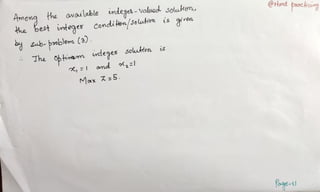 @Hond practicing
Among the available integer-valued solution,
the best integer condition/solution is given
by sub-problem (2).
∴ The Optimum integer solution is
x₁ = 1 and x₂ = 1
Max Z = 5.
Page-11